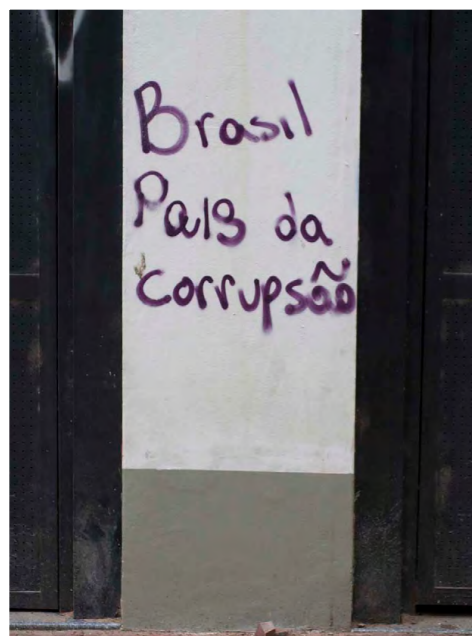 Brasil
Pais da
corrupsão